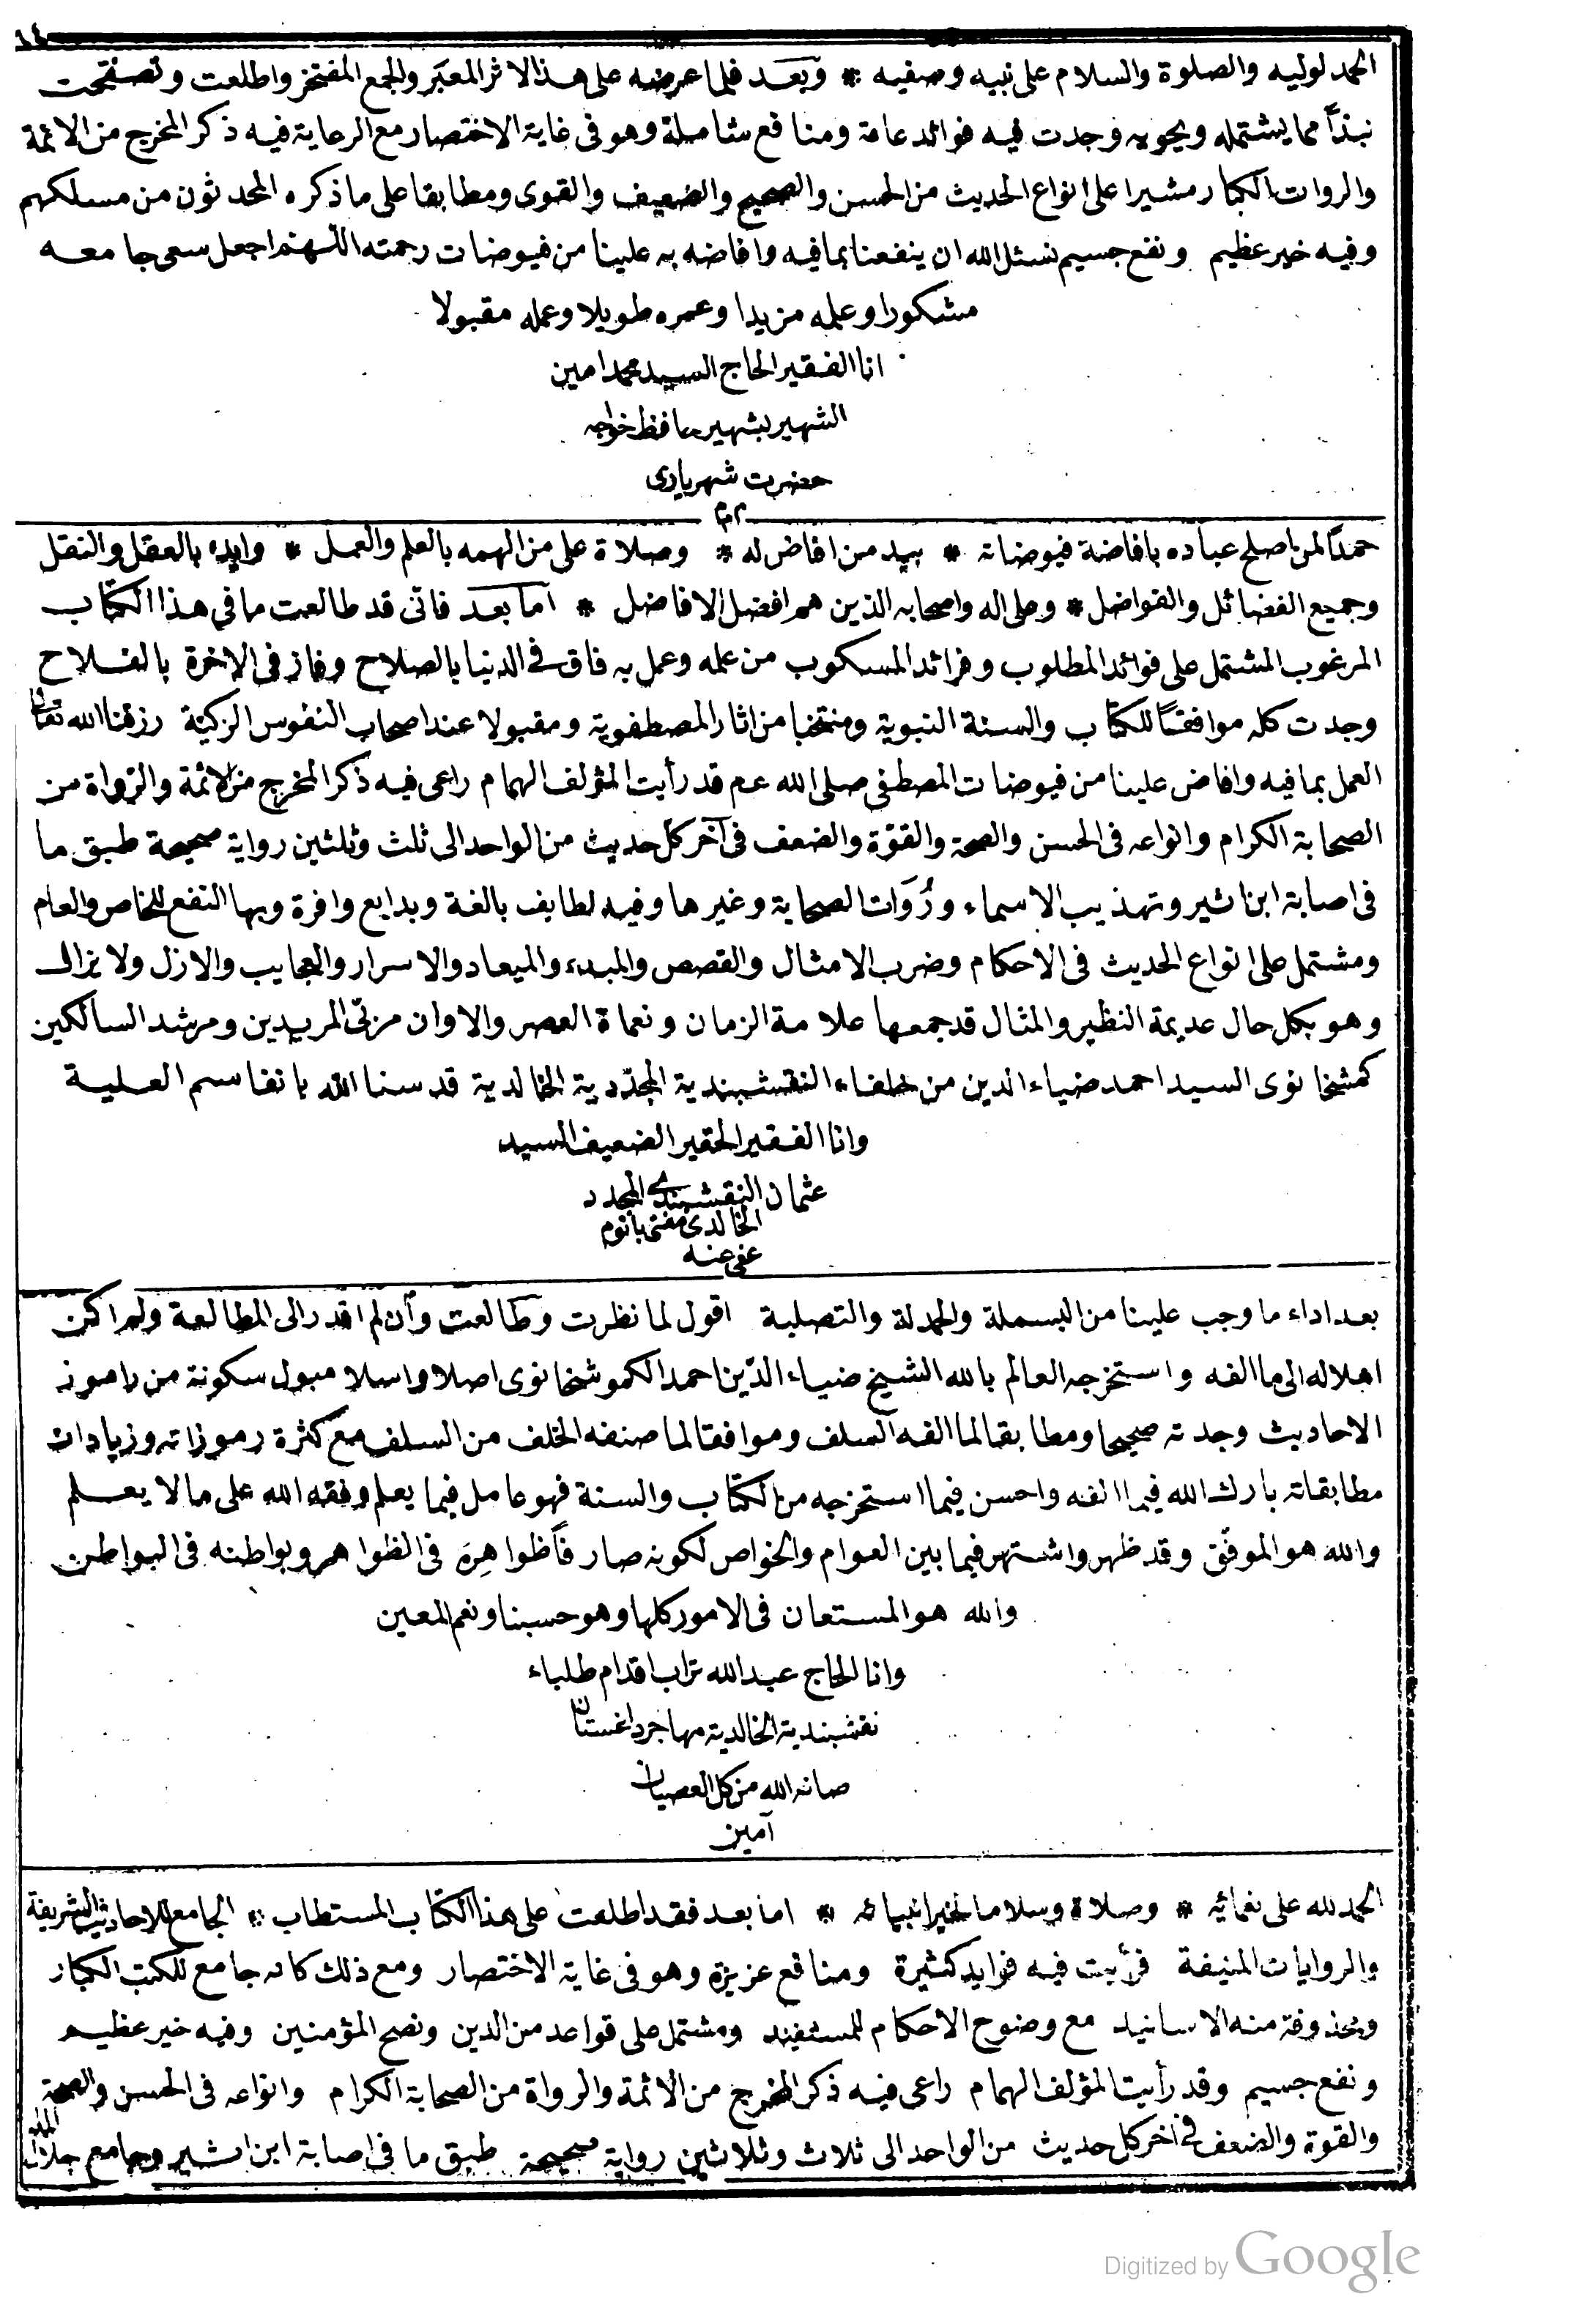 ١٤
الحمد لوليه والصلوة والسلام على نبيه وصفيه * وبعد فلما عرضه على هذا الاثر المعبر والجمع المفتخر واطلعت وتصفحت
نبذاً مما يشتمله ويحويه وجدت فيه فوائد عامة ومنافع شاملة وهو فى غاية الاختصار مع الرعاية فيه ذكر المخرج من الائمة
والروات الكبار مشيرا على انواع الحديث من الحسن والصحيح والضعيف والقوى ومطابقا على ما ذكره المحدثون من مسلكهم
وفيه خير عظيم ونفع جسيم نسئل الله ان ينفعنا بما فيه وافاضه به علينا من فيوضات رحمته اللهم اجعل سعى جامعه
مشكورا وعلمه مزيدا وعمره طويلا وعمله مقبولا
انا الفقير الحاج السيد محمد امين
الشهير بشهير حافظ خواجه
حضرت شهريارى
م م
حمداً لمن اصلح عباده بافاضة فيوضاته * بيد من افاض له * وصلاة على من الهمه بالعلم والعمل * وايده بالعقل والنقل
وجميع الفضائل والفواضل * وعلى اله واصحابه الذين هم افضل الافاضل * اما بعد فانى قد طالعت ما فى هذا الكتاب
المرغوب المشتمل على فوائد المطلوب وفرائد المسكوب من علمه وعمل به فاق فى الدنيا بالصلاح وفاز فى الاخرة بالفلاح
وجدت كله موافقاً للكتاب والسنة النبوية ومنتخبا من اثار المصطفوية ومقبولا عند اصحاب النفوس الزكية رزقنا الله تعالى
العمل بما فيه وافاض علينا من فيوضات المصطفى صلى الله عم قد رأيت المؤلف الهمام راعى فيه ذكر المخرج من الائمة والرواة من
الصحابة الكرام وانواعه فى الحسن والصحة والقوّة والضعف فى آخر كل حديث من الواحد الى ثلث وثلثين رواية صحيحة طبق ما
فى اصابة ابن اثير وتهذيب الاسماء ورُوَات الصحابة وغيرها وفيه لطايف بالغة وبدايع وافرة وبها النفع للخاص والعام
ومشتمل على انواع الحديث فى الاحكام وضرب الامثال والقصص والمبدء والميعاد والاسرار والعجايب والازل ولا يزال
وهو بكل حال عديمة النظير والمثال قد جمعها علامة الزمان ونعماة العصر والاوان مربّى المريدين ومرشد السالكين
كمشخانوى السيد احمد ضياء الدين من خلفاء النقشبندية المجدّدية الخالدية قدسنا الله بانفاسم العلية
وانا الفقير الحقير الضعيف السيد
عثمان النقشبندى المجدد
الخالدى مفتى بانوم
عفى عنه
بعد اداء ما وجب علينا من البسملة والحمدلة والتصلية اقول لما نظرت وطالعت وأن لم اقدر الى المطالعة ولم اكن
اهلا له الى ما الفه واستخرجه العالم بالله الشيخ ضياء الدّين احمد الكموشخانوى اصلا واسلامبول سكونة من راموز
الاحاديث وجدته صحيحا ومطابقا لما الفه السلف وموافقا لما صنفه الخلف من السلف مع كثرة رموزاته وزيادات
مطابقاته بارك الله فيما الفه واحسن فيما استخرجه من الكتاب والسنة فهو عامل فيما يعلم وفقه الله على ما لا يعلم
والله هو الموفّق وقد ظهر واشتهر فيما بين العوام والخواص لكونه صار فأظواهِرَه فى الظواهر وبواطنه فى البواطن
والله هو المستعان فى الامور كلها وهو حسبنا ونعم المعين
وانا الحاج عبد الله تراب اقدام طلباء
نقشبندية الخالدية مهاجر داغستان
صانه الله من كل العصيان
آمين
الحمد لله على نعمائه * وصلاة وسلاما لخير انبيائه * اما بعد فقد اطلعت على هذا الكتاب المستطاب * الجامع للاحاديث الشريفة
والروايات المنيفة فرأيت فيه فوايد كثيرة ومنافع عزيزة وهو فى غاية الاختصار ومع ذلك كانه جامع للكتب الكبار
ومحذوفة منه الاسانيد مع وضوح الاحكام للمستفيد ومشتمل على قواعد من الدين ونصح المؤمنين وفيه خير عظيم
ونفع جسيم وقد رأيت المؤلف الهمام راعى فيه ذكر المخرج من الائمة والرواة من الصحابة الكرام وانواعه فى الحسن والصحة
والقوة والضعف فى اخر كل حديث من الواحد الى ثلاث وثلاثين رواية صحيحة طبق ما فى اصابة ابن اثير وجامع جلال الملة
Digitized by Google